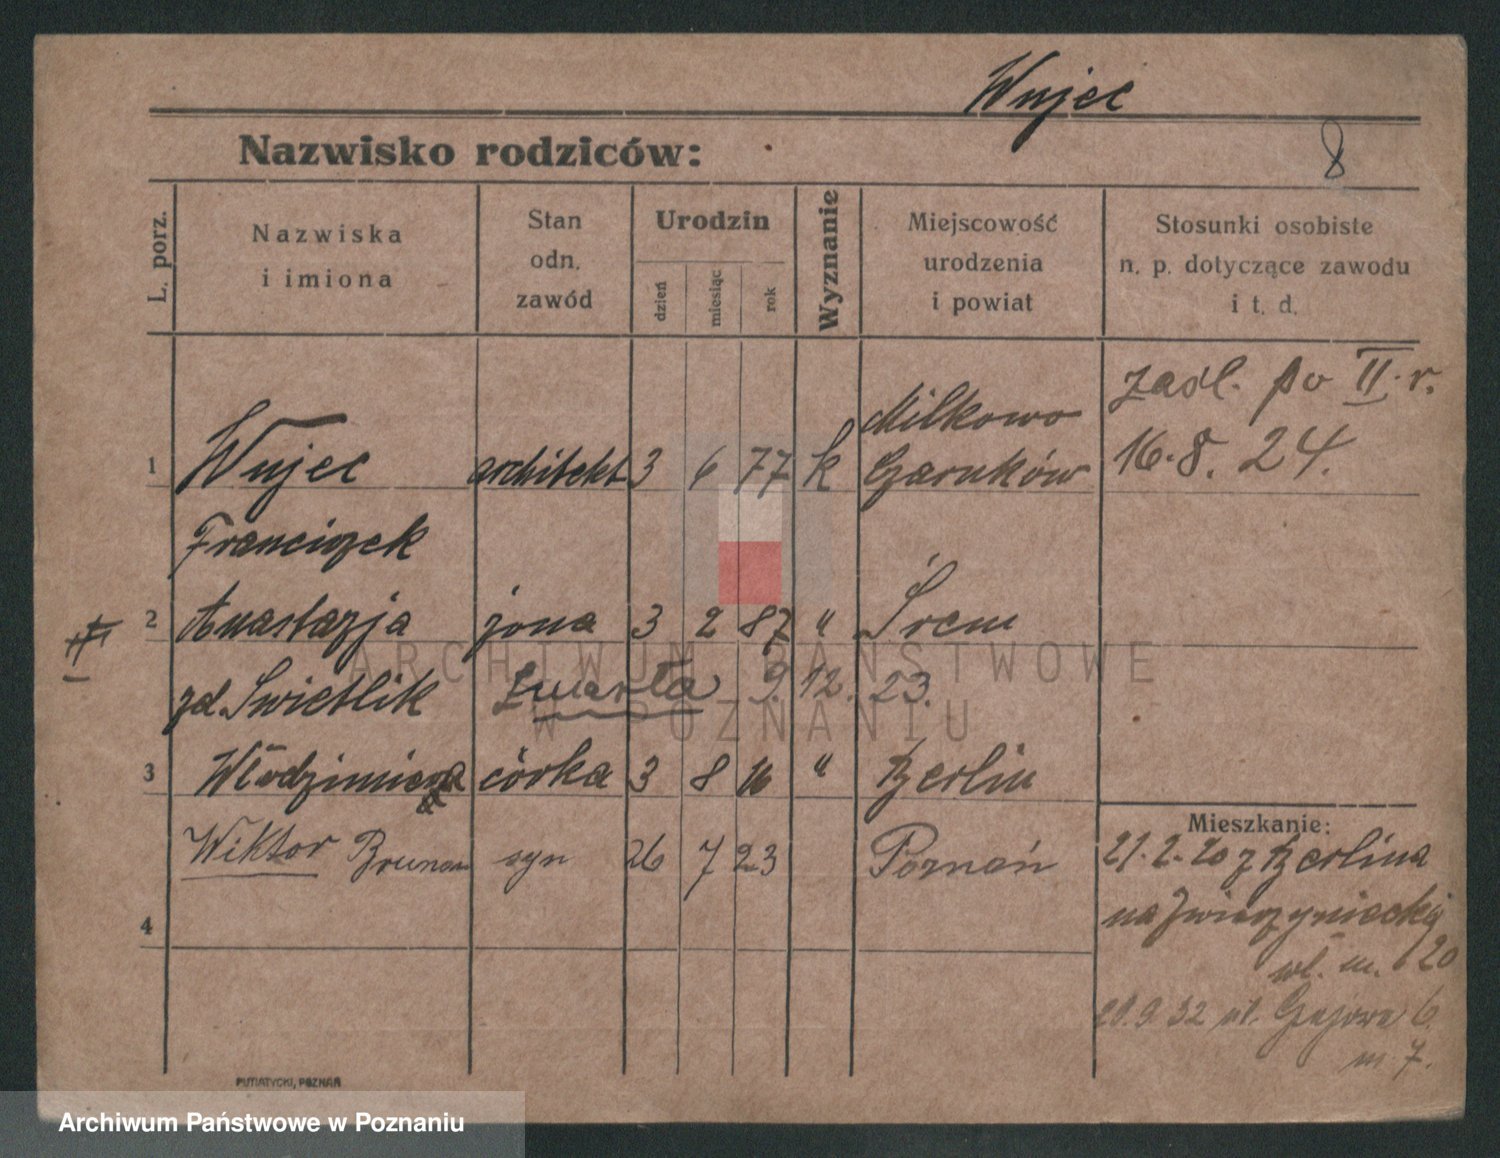 Wujec
8
Nazwisko rodziców:
L. porz.
Nazwiska
i imiona
Stan
odn.
zawód
Urodzin
dzień
miesiąc
rok
Wyznanie
Miejscowość
urodzenia
i powiat
Stosunki osobiste
n. p. dotyczące zawodu
i t. d.
1 Wujec architekt 3 6 77 k Milkowo
Czarnków
Franciszek
zadl. po II. r.
16. 8. 24.
II
2 Anastazja żona 3 2 87 " Śrem
zd. Swietlik Zmarła 9. 12. 23.
3 Włodzimiera córka 3 8 16 " Berlin
Wiktor Brunon syn 26 7 23 Poznań
4
Mieszkanie:
21. 2. 20 z Berlina
na Zwierzyniecką
wł. m. 20
21. 9. 32 ul. Gajowa 6.
m 7.
PUTIATYCKI, POZNAŃ
ARCHIWUM PAŃSTWOWE
W POZNANIU
Archiwum Państwowe w Poznaniu